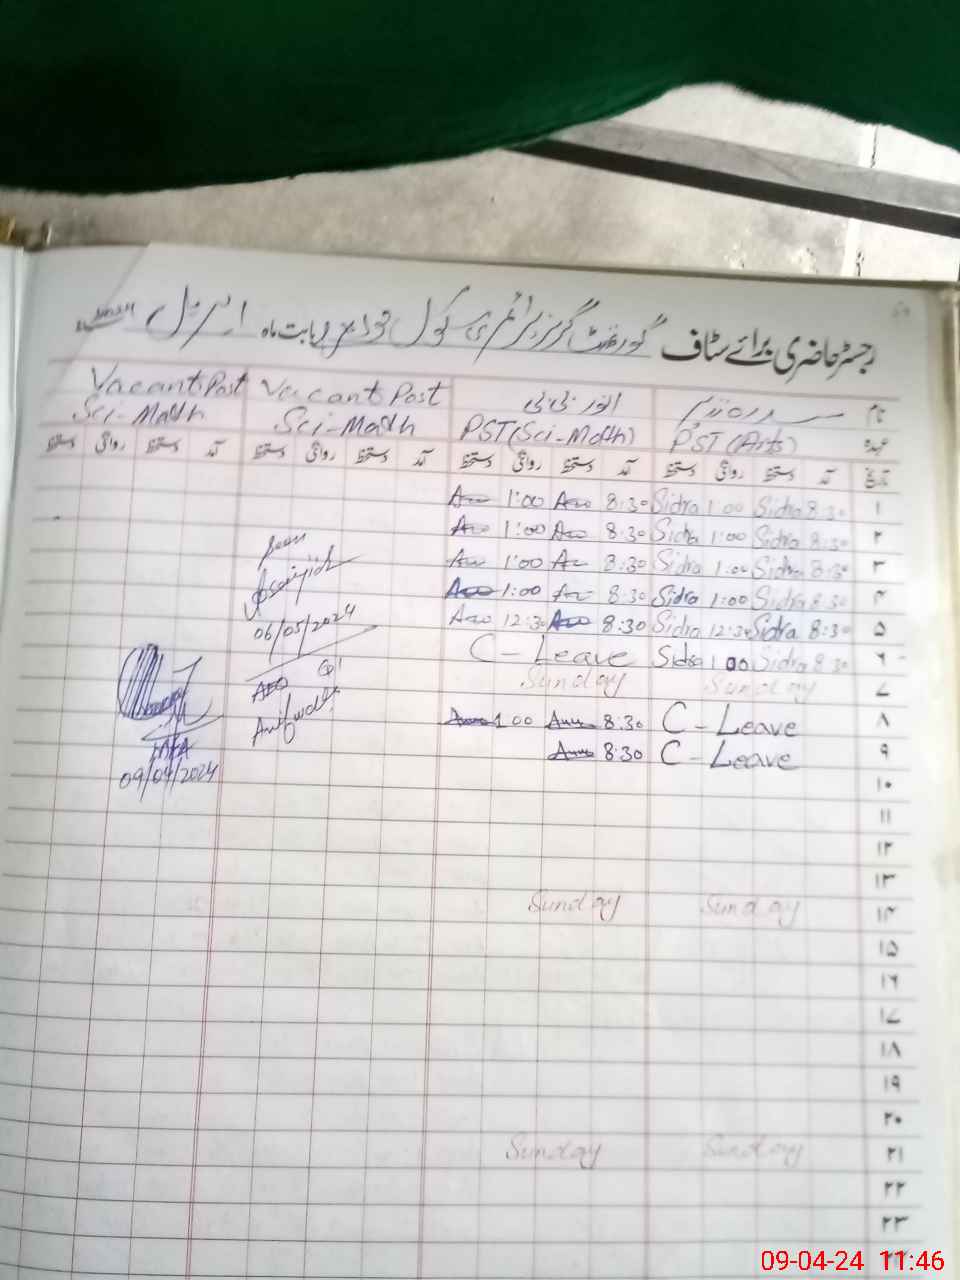 رجسٹر حاضری برائے سٹاف گورنمنٹ گرلز پرائمری سکول بابت ماہ اپریل
نام سدرہ انور بی بی Vacant Post Vacant Post
عہدہ PST (Arts) PST (Sci-Math) Sci-Math Sci-Math
تاریخ آمد دستخط روانگی دستخط آمد دستخط روانگی دستخط آمد دستخط روانگی دستخط آمد دستخط روانگی دستخط
۱ 8:30 Sidra 1:00 Sidra 8:30 1:00
۲ 8:30 Sidra 1:00 Sidra 8:30 1:00
۳ 8:30 Sidra 1:00 Sidra 8:30 1:00
۴ 8:30 Sidra 1:00 Sidra 8:30 1:00
۵ 8:30 Sidra 12:30 Sidra 8:30 12:30
06/05/2024
۶ 8:30 Sidra 1:00 Sidra C-Leave
۷ Sunday Sunday
AEO
۸ C-Leave 8:30 1:00
۹ C-Leave 8:30
09/04/2024
۱۰
۱۱
۱۲
۱۳
۱۴ Sunday Sunday
۱۵
۱۶
۱۷
۱۸
۱۹
۲۰
۲۱ Sunday Sunday
۲۲
۲۳
۲۴
09-04-24 11:46